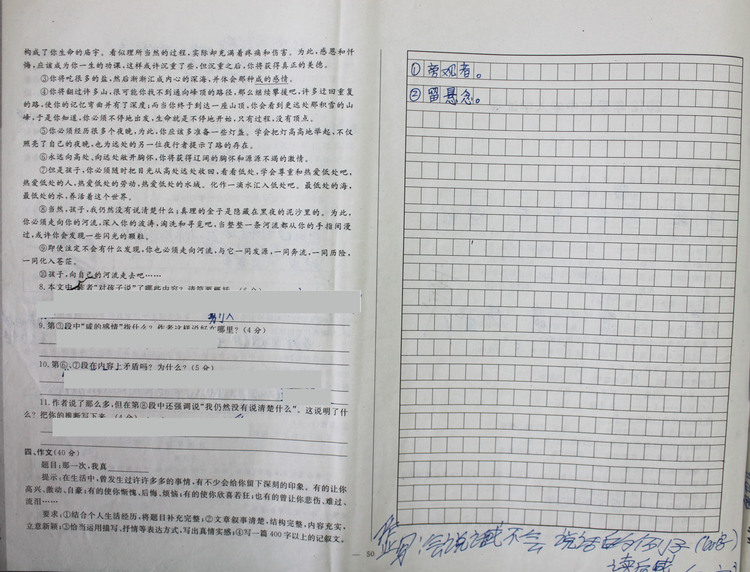 构成了你生命的庙宇。看似理所当然的过程,实际却充满着疼痛和伤害。为此,感恩和忏
悔,应该成为你一生的功课,这样或许沉重了些,但沉重之后,你将获得真正的美德。
③你将吃很多的盐,然后渐渐汇成内心的深海,并体会那种咸的感情。
④你将翻过许多山,很可能你找不到通向峰顶的路径,那么继续攀援吧,许多迂回重复
的路,使你的记忆弯曲并有了深度;而当你终于到达一座山顶,你会看到更远处那积雪的山
峰,于是你知道,你必须不停地出发,生命就是不停地开始,只有过程,没有顶点。
⑤你必须经历很多个夜晚,为此,你应该多准备一些灯盏。学会把灯高高地举起,不仅
照亮了自己的夜晚,也为远处的另一位夜行者提示了路的存在。
⑥永远向高处、向远处敞开胸怀,你将获得辽阔的胸怀和源源不竭的激情。
⑦但是,孩子,你必须随时把目光从高处远处收回,看看低处,学会尊重和热爱低处吧,
热爱低处的人,热爱低处的劳动,热爱低处的水域。化作一滴水汇入低处吧。最低处的海,
最低处的水,养活着这个世界。
⑧当然,孩子,我仍然没有说清楚什么;真理的金子是隐藏在黑夜的泥沙里的。为此,
你必须走向你的河流,深入你的波涛,淘洗和寻觅吧,当整整一条河流都从你的手指间漫
过,或许你会发现一些闪光的颗粒。
⑨即使注定不会有什么发现,你也必须走向河流,与它一同发源,一同奔流,一同历险,
一同化入苍茫。
⑩孩子,向自己的河流走去吧……
8.本文中,作者“对孩子说”了哪些内容?请简要概括。
别人
9.第③段中“咸的感情”指什么?作者这样说好在哪里?(4分)
10.第⑥、⑦段在内容上矛盾吗?为什么?(5分)
11.作者说了那么多,但在第⑧段中还强调说“我仍然没有说清楚什么”,这说明了什
么?把你的推断写下来。(4分)
四、作文(40分)
题目:那一次,我真
提示:在生活中,曾发生过许许多多的事情,有不少会给你留下深刻的印象。有的让你
高兴、激动、自豪;有的使你惭愧、后悔、烦恼;有的使你欣喜若狂;也有的曾让你悲伤、难过、
流泪……
要求:①结合个人生活经历,将题目补充完整;②文章叙事清楚,结构完整,内容充实,
立意新颖;③恰当运用描写、抒情等表达方式,写出真情实感;④写一篇400字以上的记叙文。
— 50
① 旁观者。
② 留悬念。
会说话或不会说话的例子
读后感